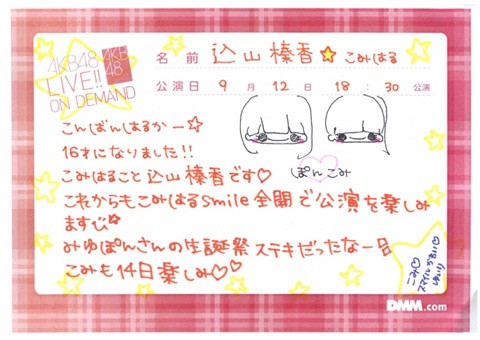 AKB48
LIVE!!
ON DEMAND
AKB
48
名前 込山榛香☆ こみはる
公演日 9月 12日 18:30 公演
こんばんはるかー☆
16才になりました!!
こみはること込山榛香です♡
ぽんこみ
これからもこみはるSmile全開で公演を楽しみ
ます
みゆぽんさんの生誕祭ステキだったなー
こみも14日楽しみ♡♡
こみ♡
スマイル
DMM.com